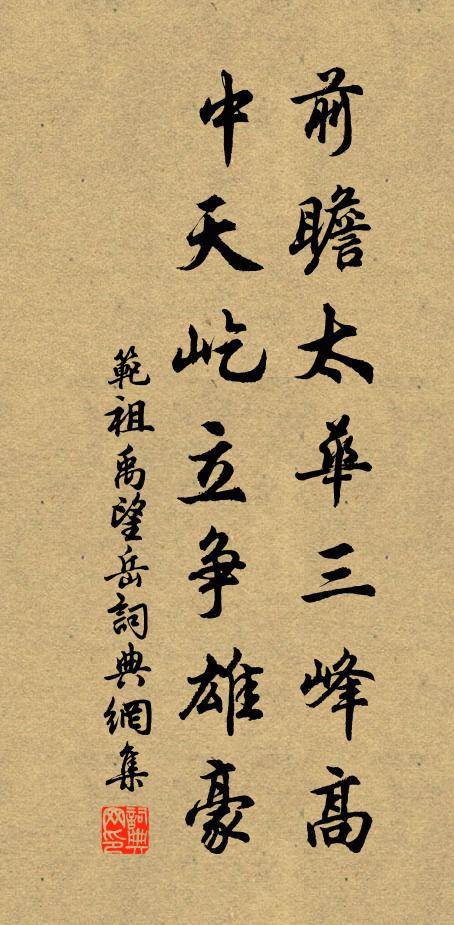 前瞻太華三峰高
中天屹立争雄豪
範祖禹望岳詞典網集
詞典網印